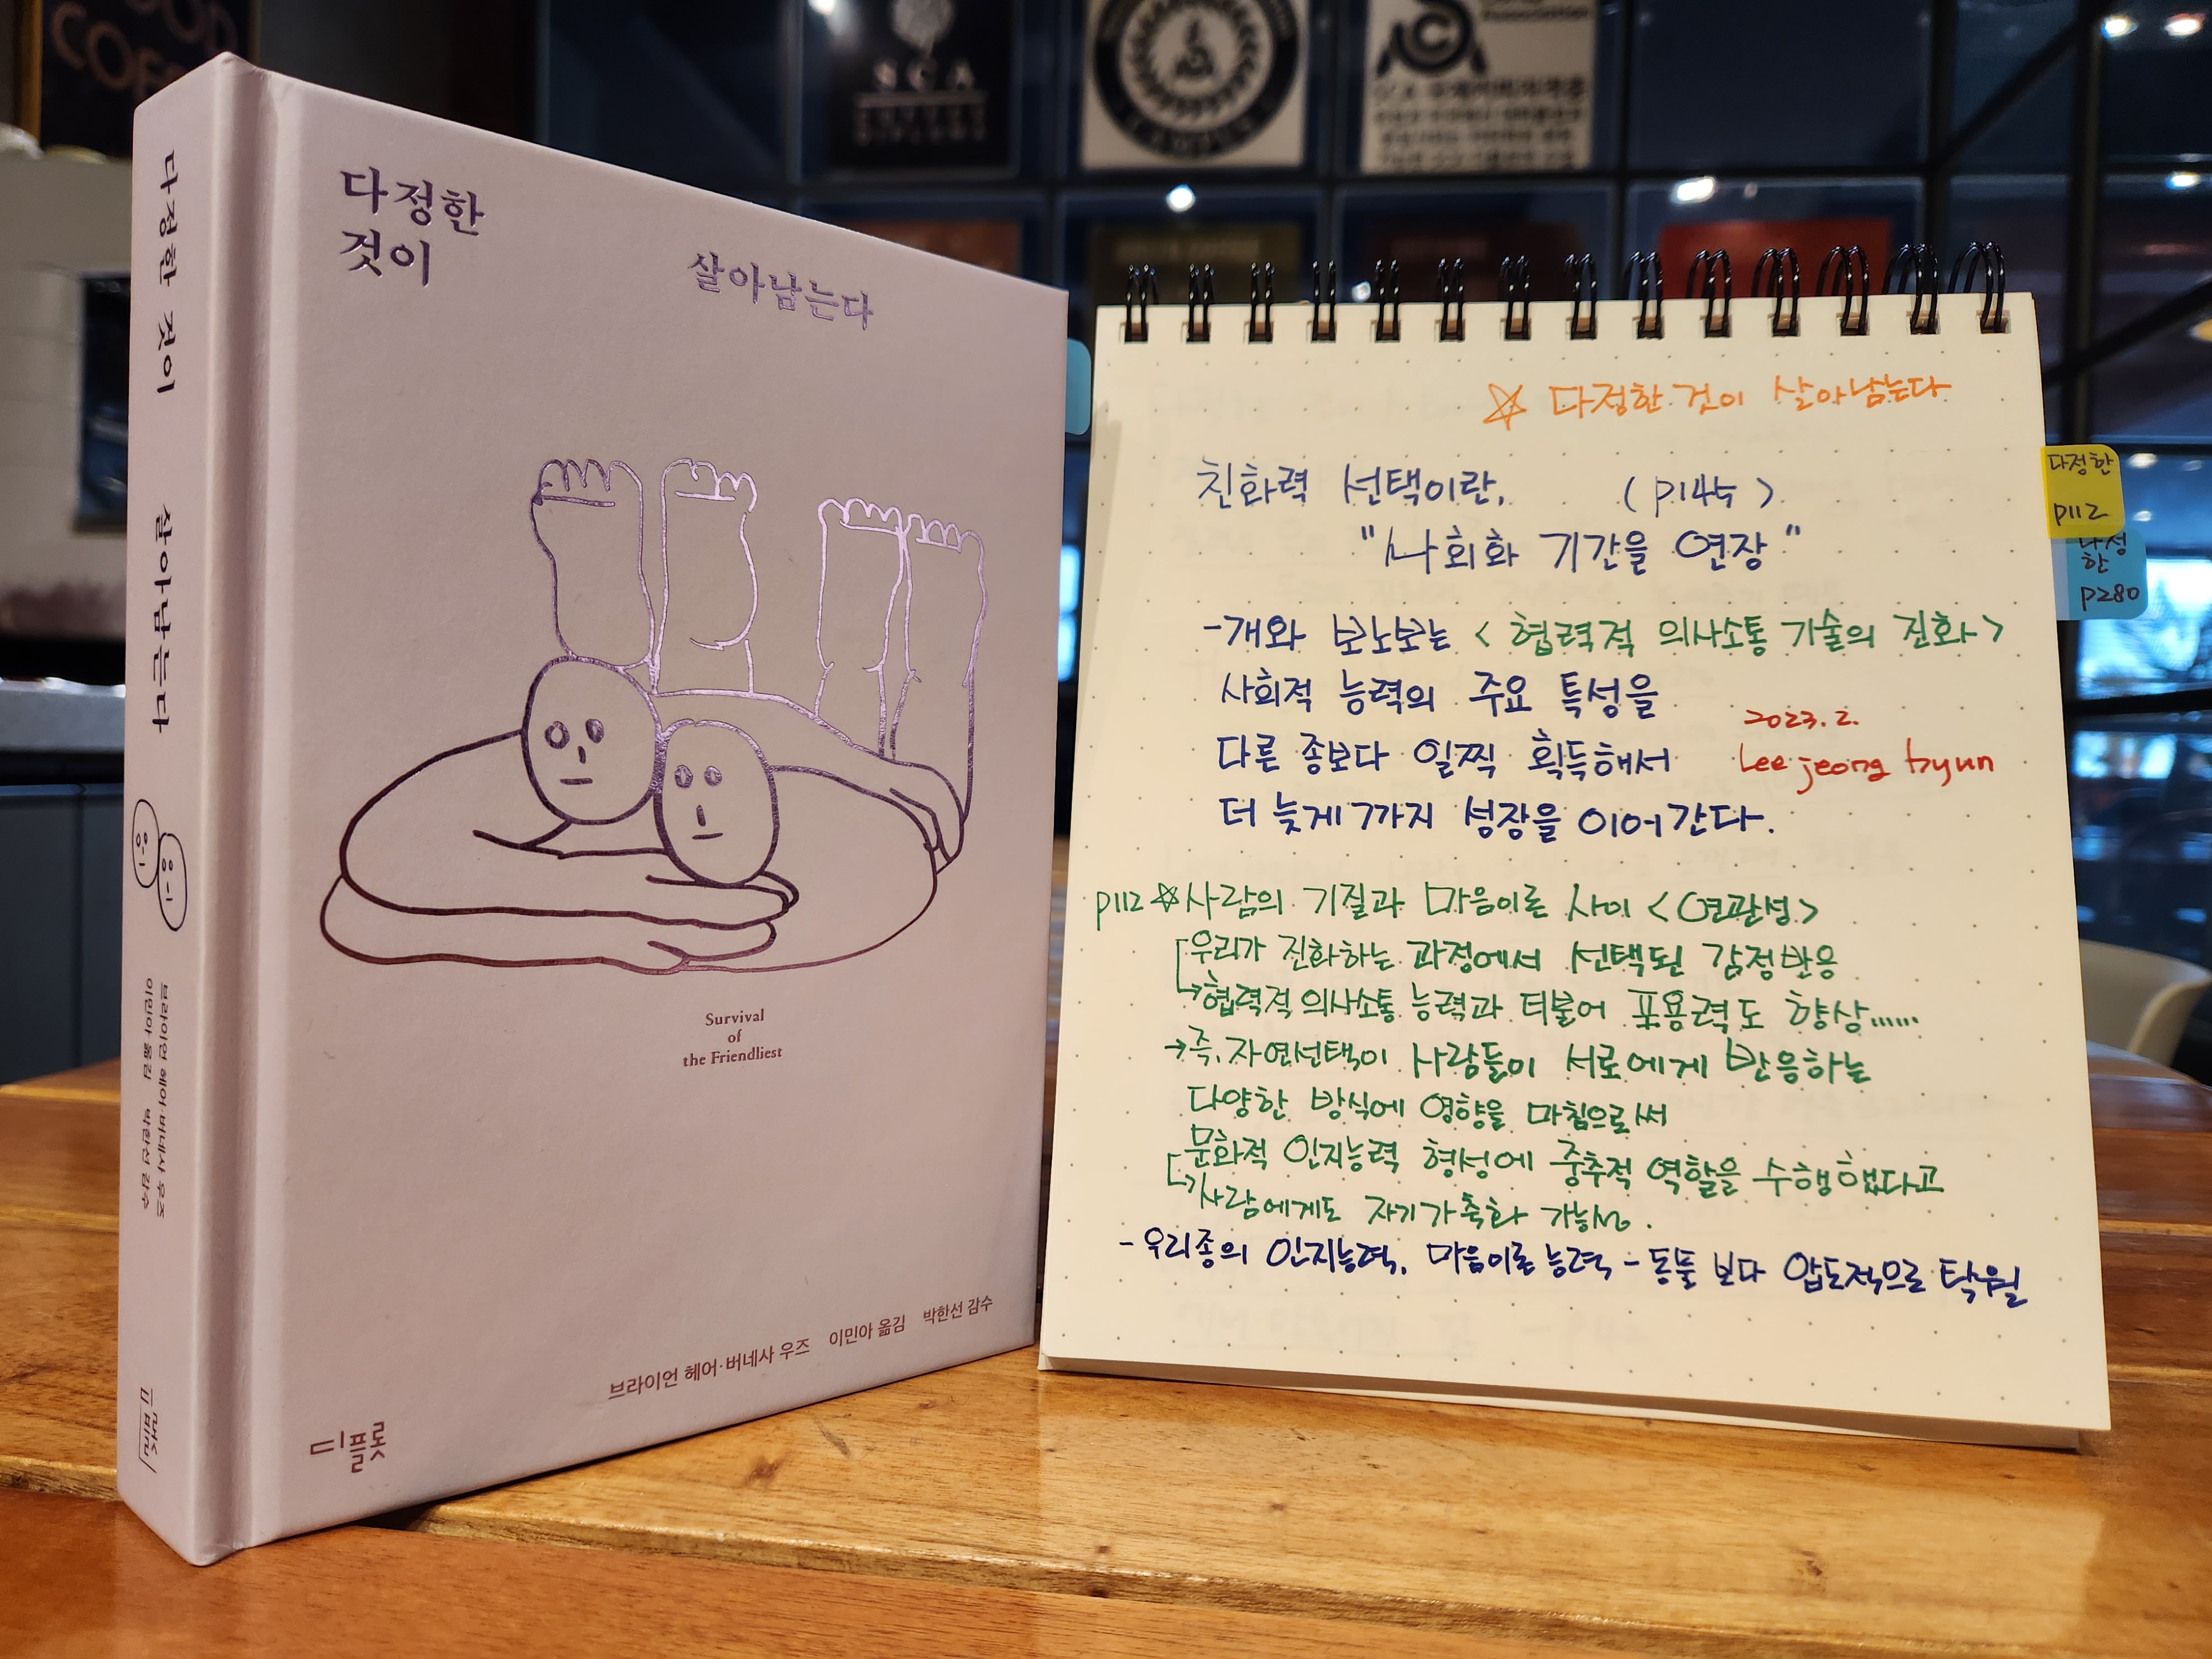 다정한 것이 살아남는다
브라이언 헤어·버네사 우즈
이민아 옮김 박한선 감수
디플롯
다정한
것이
살아남는다
Survival
of
the Friendliest
브라이언 헤어·버네사 우즈 이민아 옮김 박한선 감수
디플롯
SCA
☆ 다정한 것이 살아남는다
친화력 선택이란, (p145)
"사회화 기간을 연장"
-개와 보노보는 <협력적 의사소통 기술의 진화>
사회적 능력의 주요 특성을
다른 종보다 일찍 획득해서
더 늦게까지 성장을 이어간다.
2023. 2.
Lee jeong hyun
p112 ☆사람의 기질과 마음이론 사이 <연관성>
우리가 진화하는 과정에서 선택된 감정반응
↳협력적 의사소통 능력과 더불어 포용력도 향상......
→즉, 자연선택이 사람들이 서로에게 반응하는
다양한 방식에 영향을 마침으로써
문화적 인지능력 형성에 중추적 역할을 수행했다고
↳사람에게도 자기가축화 가능성.
-우리종의 인지능력, 마음이론 능력 - 동물 보다 압도적으로 탁월
다정한
p112
다정
한
p280